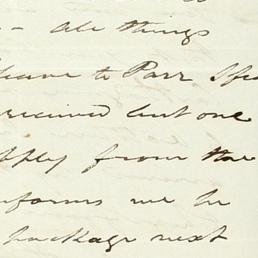 - All things
leave to Parr Spe
received but one
pply from the
nforms me he
package next